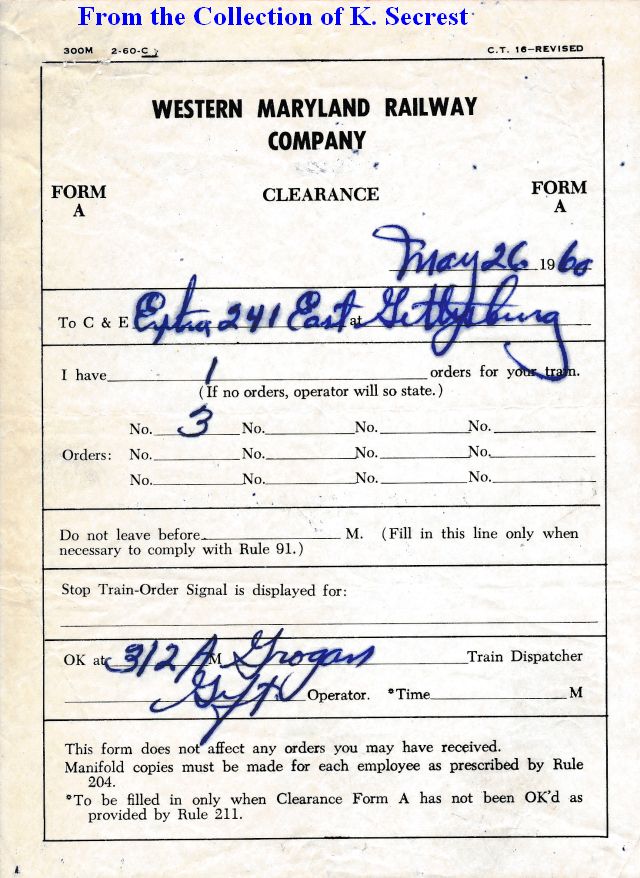 From the Collection of K. Secrest
300M 2-60-C C.T. 16-REVISED
WESTERN MARYLAND RAILWAY
COMPANY
FORM A CLEARANCE FORM A
May 26 1960
To C & E Extra 241 East at Gettysburg
I have 1 orders for your train.
(If no orders, operator will so state.)
No. 3 No. No. No.
Orders: No. No. No. No.
No. No. No. No.
Do not leave before M. (Fill in this line only when
necessary to comply with Rule 91.)
Stop Train-Order Signal is displayed for:
OK at 312 A M Grogan Train Dispatcher
Operator. *Time M
This form does not affect any orders you may have received.
Manifold copies must be made for each employee as prescribed by Rule
204.
*To be filled in only when Clearance Form A has not been OK'd as
provided by Rule 211.